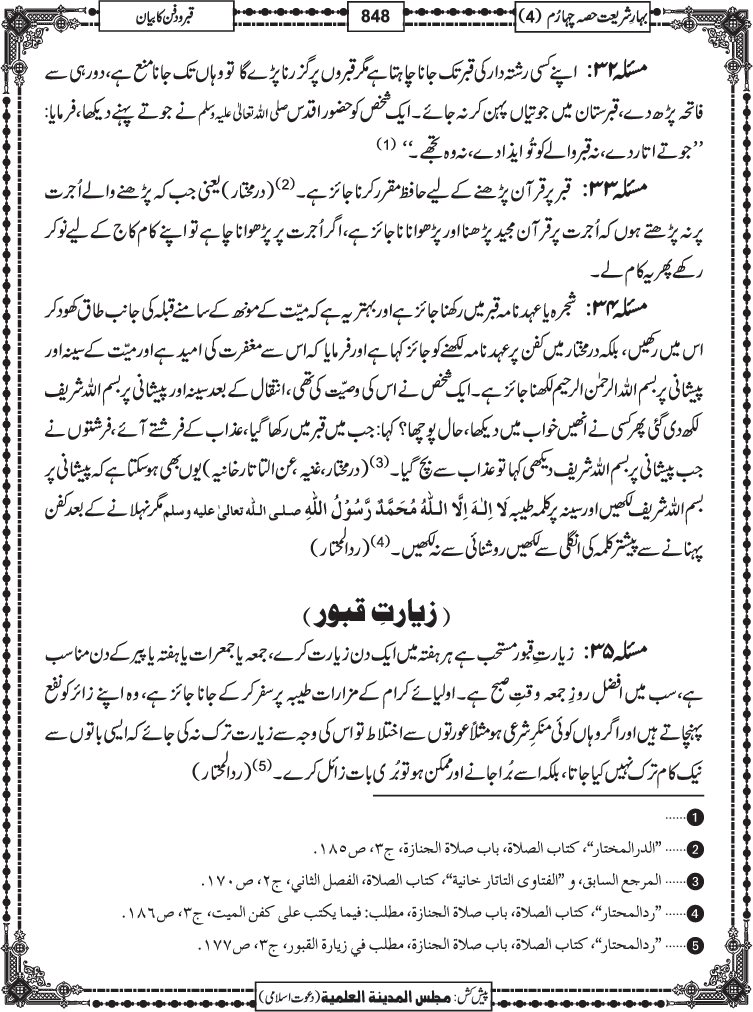 بہارِ شریعت حصہ چہارم (4)
848
قبر و دفن کا بیان
مسئلہ ۳۲: اپنے کسی رشتہ دار کی قبر تک جانا چاہتا ہے مگر قبروں پر گزرنا پڑے گا تو وہاں تک جانا منع ہے، دور ہی سے
فاتحہ پڑھ دے، قبرستان میں جوتیاں پہن کر نہ جائے۔ ایک شخص کو حضور اقدس صلی اللہ تعالیٰ علیہ وسلم نے جوتے پہنے دیکھا، فرمایا:
’’جوتے اتار دے، نہ قبر والے کو تُو ایذا دے، نہ وہ تجھے۔‘‘ (1)
مسئلہ ۳۳: قبر پر قرآن پڑھنے کے لیے حافظ مقرر کرنا جائز ہے۔(2) (درمختار) یعنی جب کہ پڑھنے والے اُجرت
پر نہ پڑھتے ہوں کہ اُجرت پر قرآن مجید پڑھنا اور پڑھوانا ناجائز ہے، اگر اُجرت پر پڑھوانا چاہے تو اپنے کام کاج کے لیے نوکر
رکھے پھر یہ کام لے۔
مسئلہ ۳۴: شجرہ یا عہد نامہ قبر میں رکھنا جائز ہے اور بہتر یہ ہے کہ میّت کے مونھ کے سامنے قبلہ کی جانب طاق کھود کر
اس میں رکھیں، بلکہ درمختار میں کفن پر عہد نامہ لکھنے کو جائز کہا ہے اور فرمایا کہ اس سے مغفرت کی امید ہے اور میّت کے سینہ اور
پیشانی پر بسم اللہ الرحمٰن الرحیم لکھنا جائز ہے۔ ایک شخص نے اس کی وصیّت کی تھی، انتقال کے بعد سینہ اور پیشانی پر بسم اللہ شریف
لکھ دی گئی پھر کسی نے انھیں خواب میں دیکھا، حال پوچھا؟ کہا: جب میں قبر میں رکھا گیا، عذاب کے فرشتے آئے، فرشتوں نے
جب پیشانی پر بسم اللہ شریف دیکھی کہا تو عذاب سے بچ گیا۔(3) (درمختار، غنیہ، عن التاتارخانیہ) یوں بھی ہو سکتا ہے کہ پیشانی پر
بسم اللہ شریف لکھیں اور سینہ پر کلمہ طیبہ لَا اِلٰـهَ اِلَّا اللّٰهُ مُحَمَّدٌ رَّسُوْلُ اللّٰهِ صلى اللہ تعالىٰ عليه وسلم مگر نہلانے کے بعد کفن
پہنانے سے پیشتر کلمہ کی انگلی سے لکھیں روشنائی سے نہ لکھیں۔(4) (ردالمحتار)
(زیارتِ قبور)
مسئلہ ۳۵: زیارتِ قبور مستحب ہے ہر ہفتہ میں ایک دن زیارت کرے، جمعہ یا جمعرات یا ہفتہ یا پیر کے دن مناسب
ہے، سب میں افضل روزِ جمعہ وقتِ صبح ہے۔ اولیائے کرام کے مزارات طیبہ پر سفر کر کے جانا جائز ہے، وہ اپنے زائر کو نفع
پہنچاتے ہیں اور اگر وہاں کوئی منکرِ شرعی ہو مثلاً عورتوں سے اختلاط تو اس کی وجہ سے زیارت ترک نہ کی جائے کہ ایسی باتوں سے
نیک کام ترک نہیں کیا جاتا، بلکہ اسے بُرا جانے اور ممکن ہو تو بُری بات زائل کرے۔(5) (ردالمحتار)
1 ......
2 ...... ”الدرالمختار“، کتاب الصلاة، باب صلاة الجنازة، ج۳، ص۱۸۵.
3 ...... المرجع السابق، و ”الفتاوی التاتار خانیة“، کتاب الصلاة، الفصل الثاني، ج۲، ص۱۷۰.
4 ...... ”ردالمحتار“، کتاب الصلاة، باب صلاة الجنازة، مطلب: فیما یکتب علی کفن المیت، ج۳، ص۱۸۶.
5 ...... ”ردالمحتار“، کتاب الصلاة، باب صلاة الجنازة، مطلب في زیارة القبور، ج۳، ص۱۷۷.
پیش کش: مجلس المدینة العلمیة (دعوتِ اسلامی)